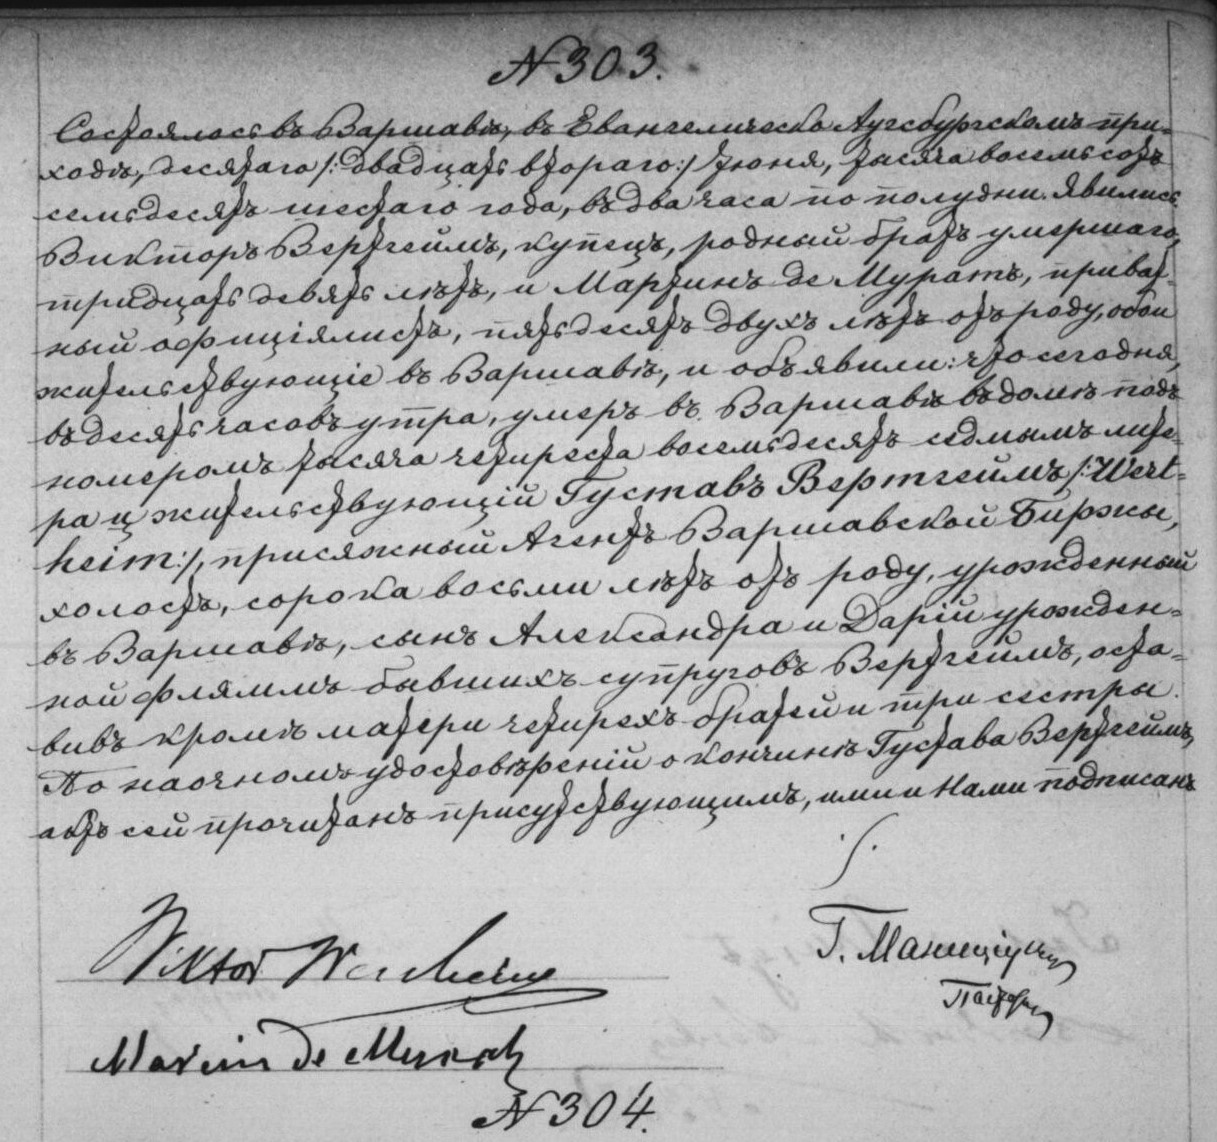 N 303.
Состоялось въ Варшавѣ, въ Евангелическо Аугсбургскомъ при-
ходѣ, десятаго /: двадцать втораго :/ Іюня, тысяча восемьсотъ
семьдесятъ шестаго года, въ два часа по полудни. Явились
Викторъ Вертгеймъ, купецъ, родный братъ умершаго,
тридцать девять лѣтъ, и Мартинъ де Муратъ, приват-
ный офиціялистъ, пятьдесятъ двухъ лѣтъ отъ роду, обои
жительствующіе въ Варшавѣ, и объявили: что сегодня,
въ десять часовъ утра, умеръ въ Варшавѣ въ домѣ подъ
номеромъ тысяча четыреста восемьдесятъ седмымъ лите-
ра ц жительствующій Густавъ Вертгеймъ /: Wert-
heim :/, присяжный Агентъ Варшавской Биржы,
холостъ, сорока восьми лѣтъ отъ роду, урожденный
въ Варшавѣ, сынъ Александра и Дарiи урожден-
ной Флямм бывшихъ супруговъ Вертгеймъ, оста-
вивъ кромѣ матери четырехъ братей и три сестры.
По наочномъ удостовѣреніи о кончинѣ Густава Вертгеймъ,
актъ сей прочитанъ присутствующимъ, ими и Нами подписанъ
Viktor Wertheim
Г. Маницiусъ
Пасторъ
Marcin de Murath
N 304.